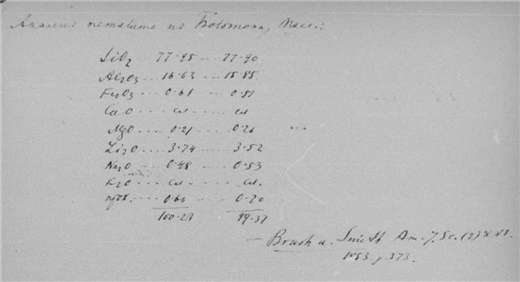 Анализ петалита из Болтона, Масс.:
SiO2 77·95 ... 77·90
Al2O3 ... 16·63 ... 15·85
Fe2O3 ... 0·61 ... 0·51
CaO ... сл ... сл
MgO ... 0·21 ... 0·26
Li2O ... 3·74 ... 3·52
Na2O ... 0·48 ... 0·53
K2O ... сл ... сл.
0·60 ... 0·70
100·23 99·37
— Brush u. Smith Am. J. Sc. (2) XVI.
1853 p. 373.